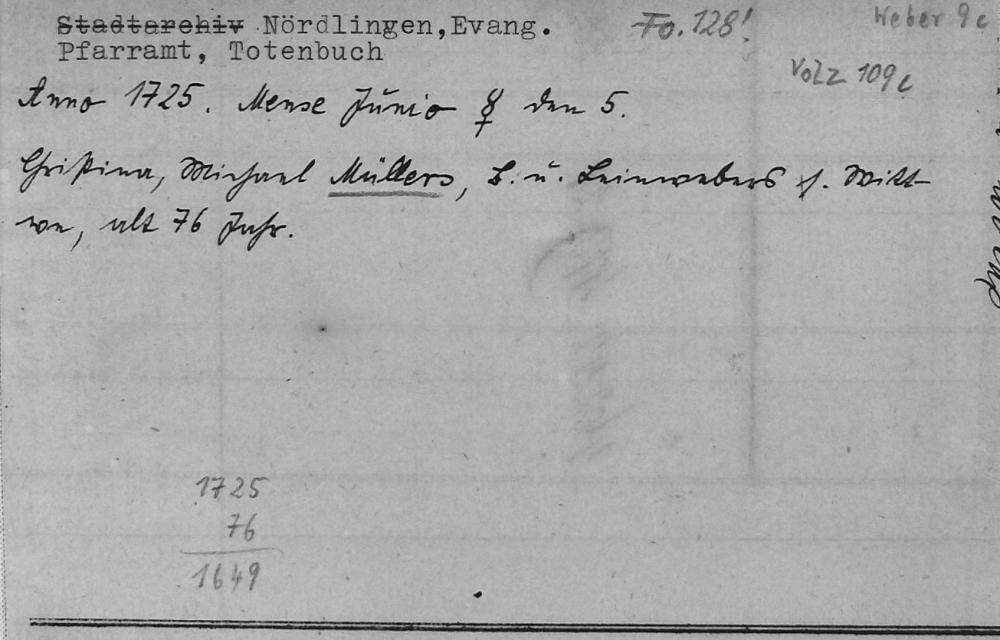 Stadtarchiv Nördlingen,Evang.
Pfarramt, Totenbuch
Fo. 128!
Weber 9c
Volz 109c
Anno 1725. Mense Junio ☿ den 5.
Christina, Michael Müllers, B. u. Leinwebers s. Witt-
we, alt 76 Jahr.
1725
76
1649